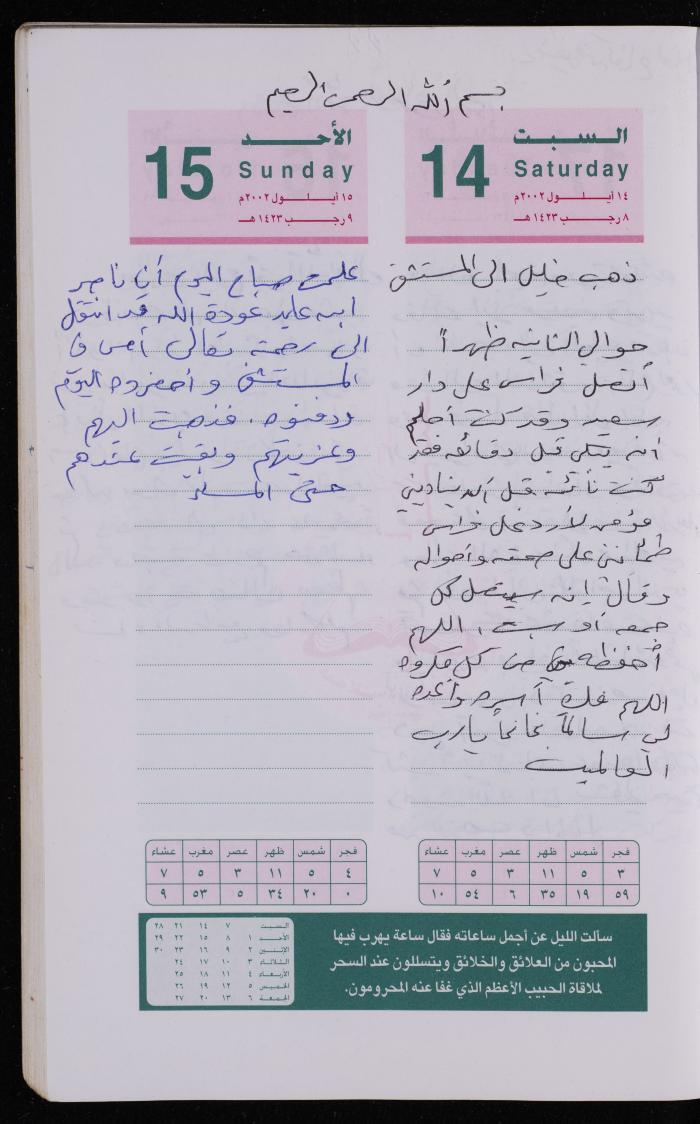 بسم الله الرحمن الرحيم
السبت
14
Saturday
١٤ أيلول ٢٠٠٢م
٨ رجب ١٤٢٣هـ
ذهب خليل الى المستشفى
حوالي الثانيه ظهراً
أتصل فراس على دار
سعيد وقد كنت أحلم
أنه يتكلم قبل دقائق فقد
كنت نائمه قبل أن يناديني
مؤمن لأرد على فراس
طمأنني على صحته وأحواله
وقال إنه سيتصل كل
جمعه أو سبت، اللهم
أحفظه من كل مكروه
اللهم فك أسره وأعده
لي سالماً غانماً يارب
العالمين
الأحد
15
Sunday
١٥ أيلول ٢٠٠٢م
٩ رجب ١٤٢٣هـ
علمت صباح اليوم أن ناصر
ابن عايد عودة الله قد انتقل
الى رحمة تعالى أمس في
المستشفى وأحضروه اليوم
ودفنوه. فذهبت اليهم
وعزيتهم وبقيت عندهم
حتى المساء
فجر شمس ظهر عصر مغرب عشاء
٣ ٥ ١١ ٣ ٥ ٧
٥٩ ١٩ ٣٥ ٦ ٥٤ ١٠
فجر شمس ظهر عصر مغرب عشاء
٤ ٥ ١١ ٣ ٥ ٧
٠ ٢٠ ٣٤ ٥ ٥٣ ٩
سألت الليل عن أجمل ساعاته فقال ساعة يهرب فيها
المحبون من العلائق والخلائق ويتسللون عند السحر
لملاقاة الحبيب الأعظم الذي غفا عنه المحرومون.
السبت ٧ ١٤ ٢١ ٢٨
الأحد ١ ٨ ١٥ ٢٢ ٢٩
الإثنين ٢ ٩ ١٦ ٢٣ ٣٠
الثلاثاء ٣ ١٠ ١٧ ٢٤
الأربعاء ٤ ١١ ١٨ ٢٥
الخميس ٥ ١٢ ١٩ ٢٦
الجمعة ٦ ١٣ ٢٠ ٢٧